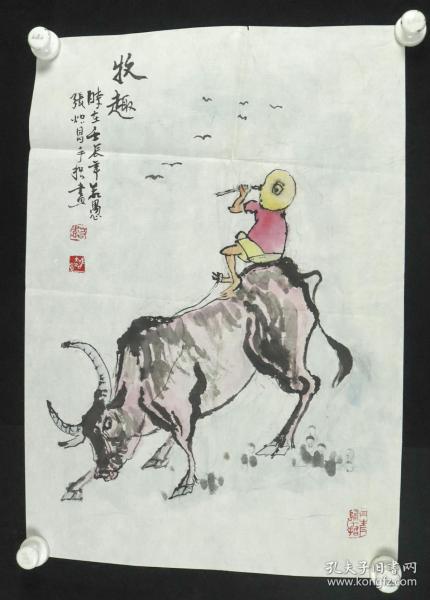 牧趣
时在壬辰年若愚
张炽昌手指画
孔夫子旧书网
www.kongfz.com